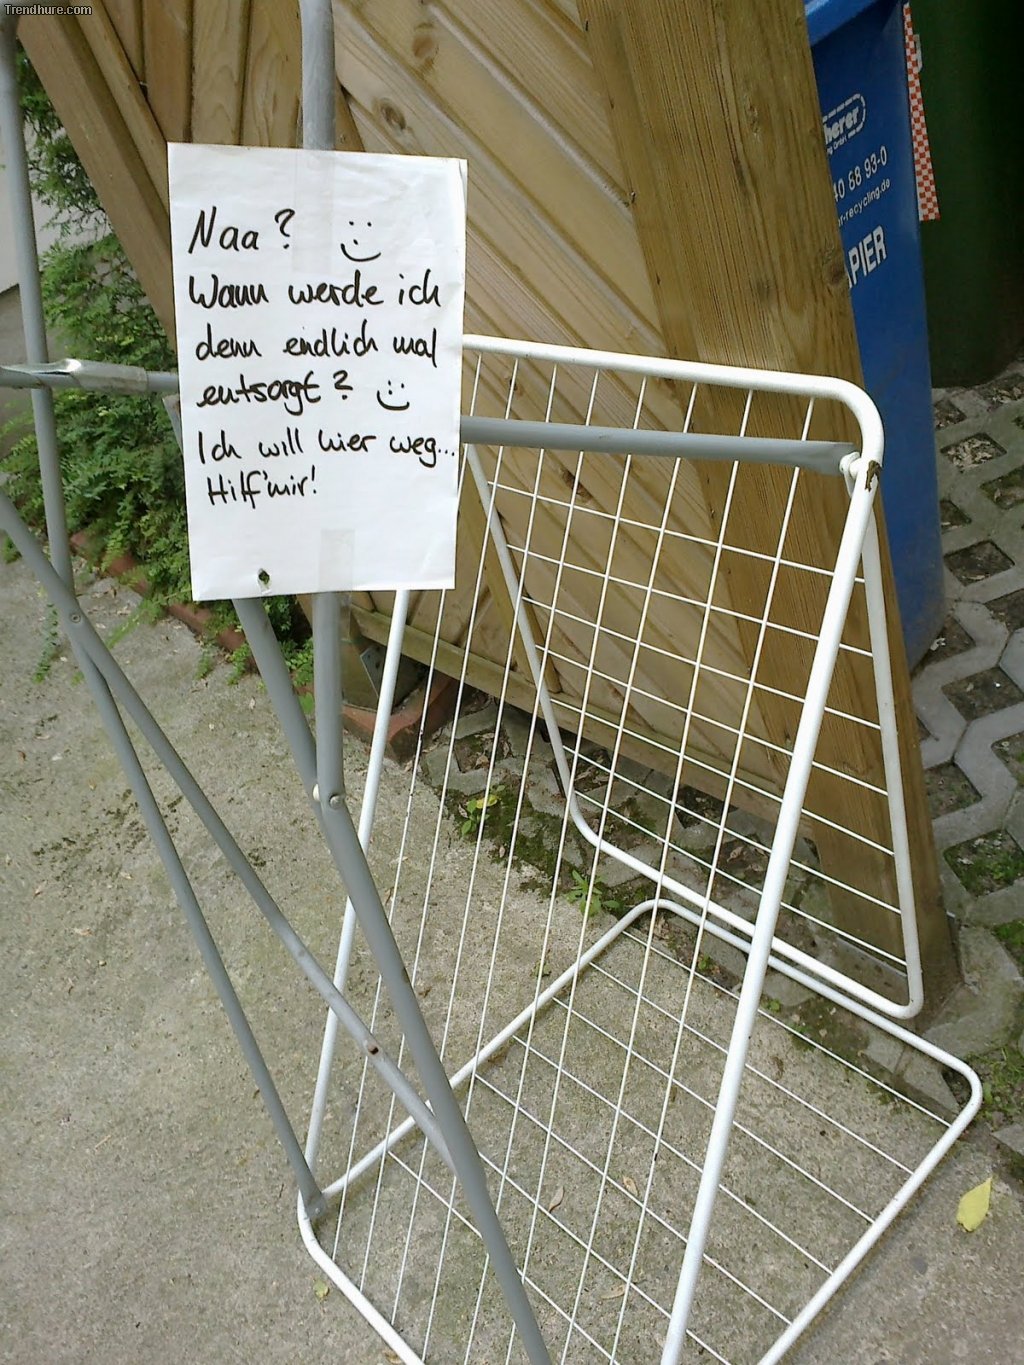 Trendhure.com
Naa? :)
Wann werde ich
denn endlich mal
entsorgt? :)
Ich will hier weg...
Hilf' mir!
herer
40 68 93-0
r-recycling.de
APIER